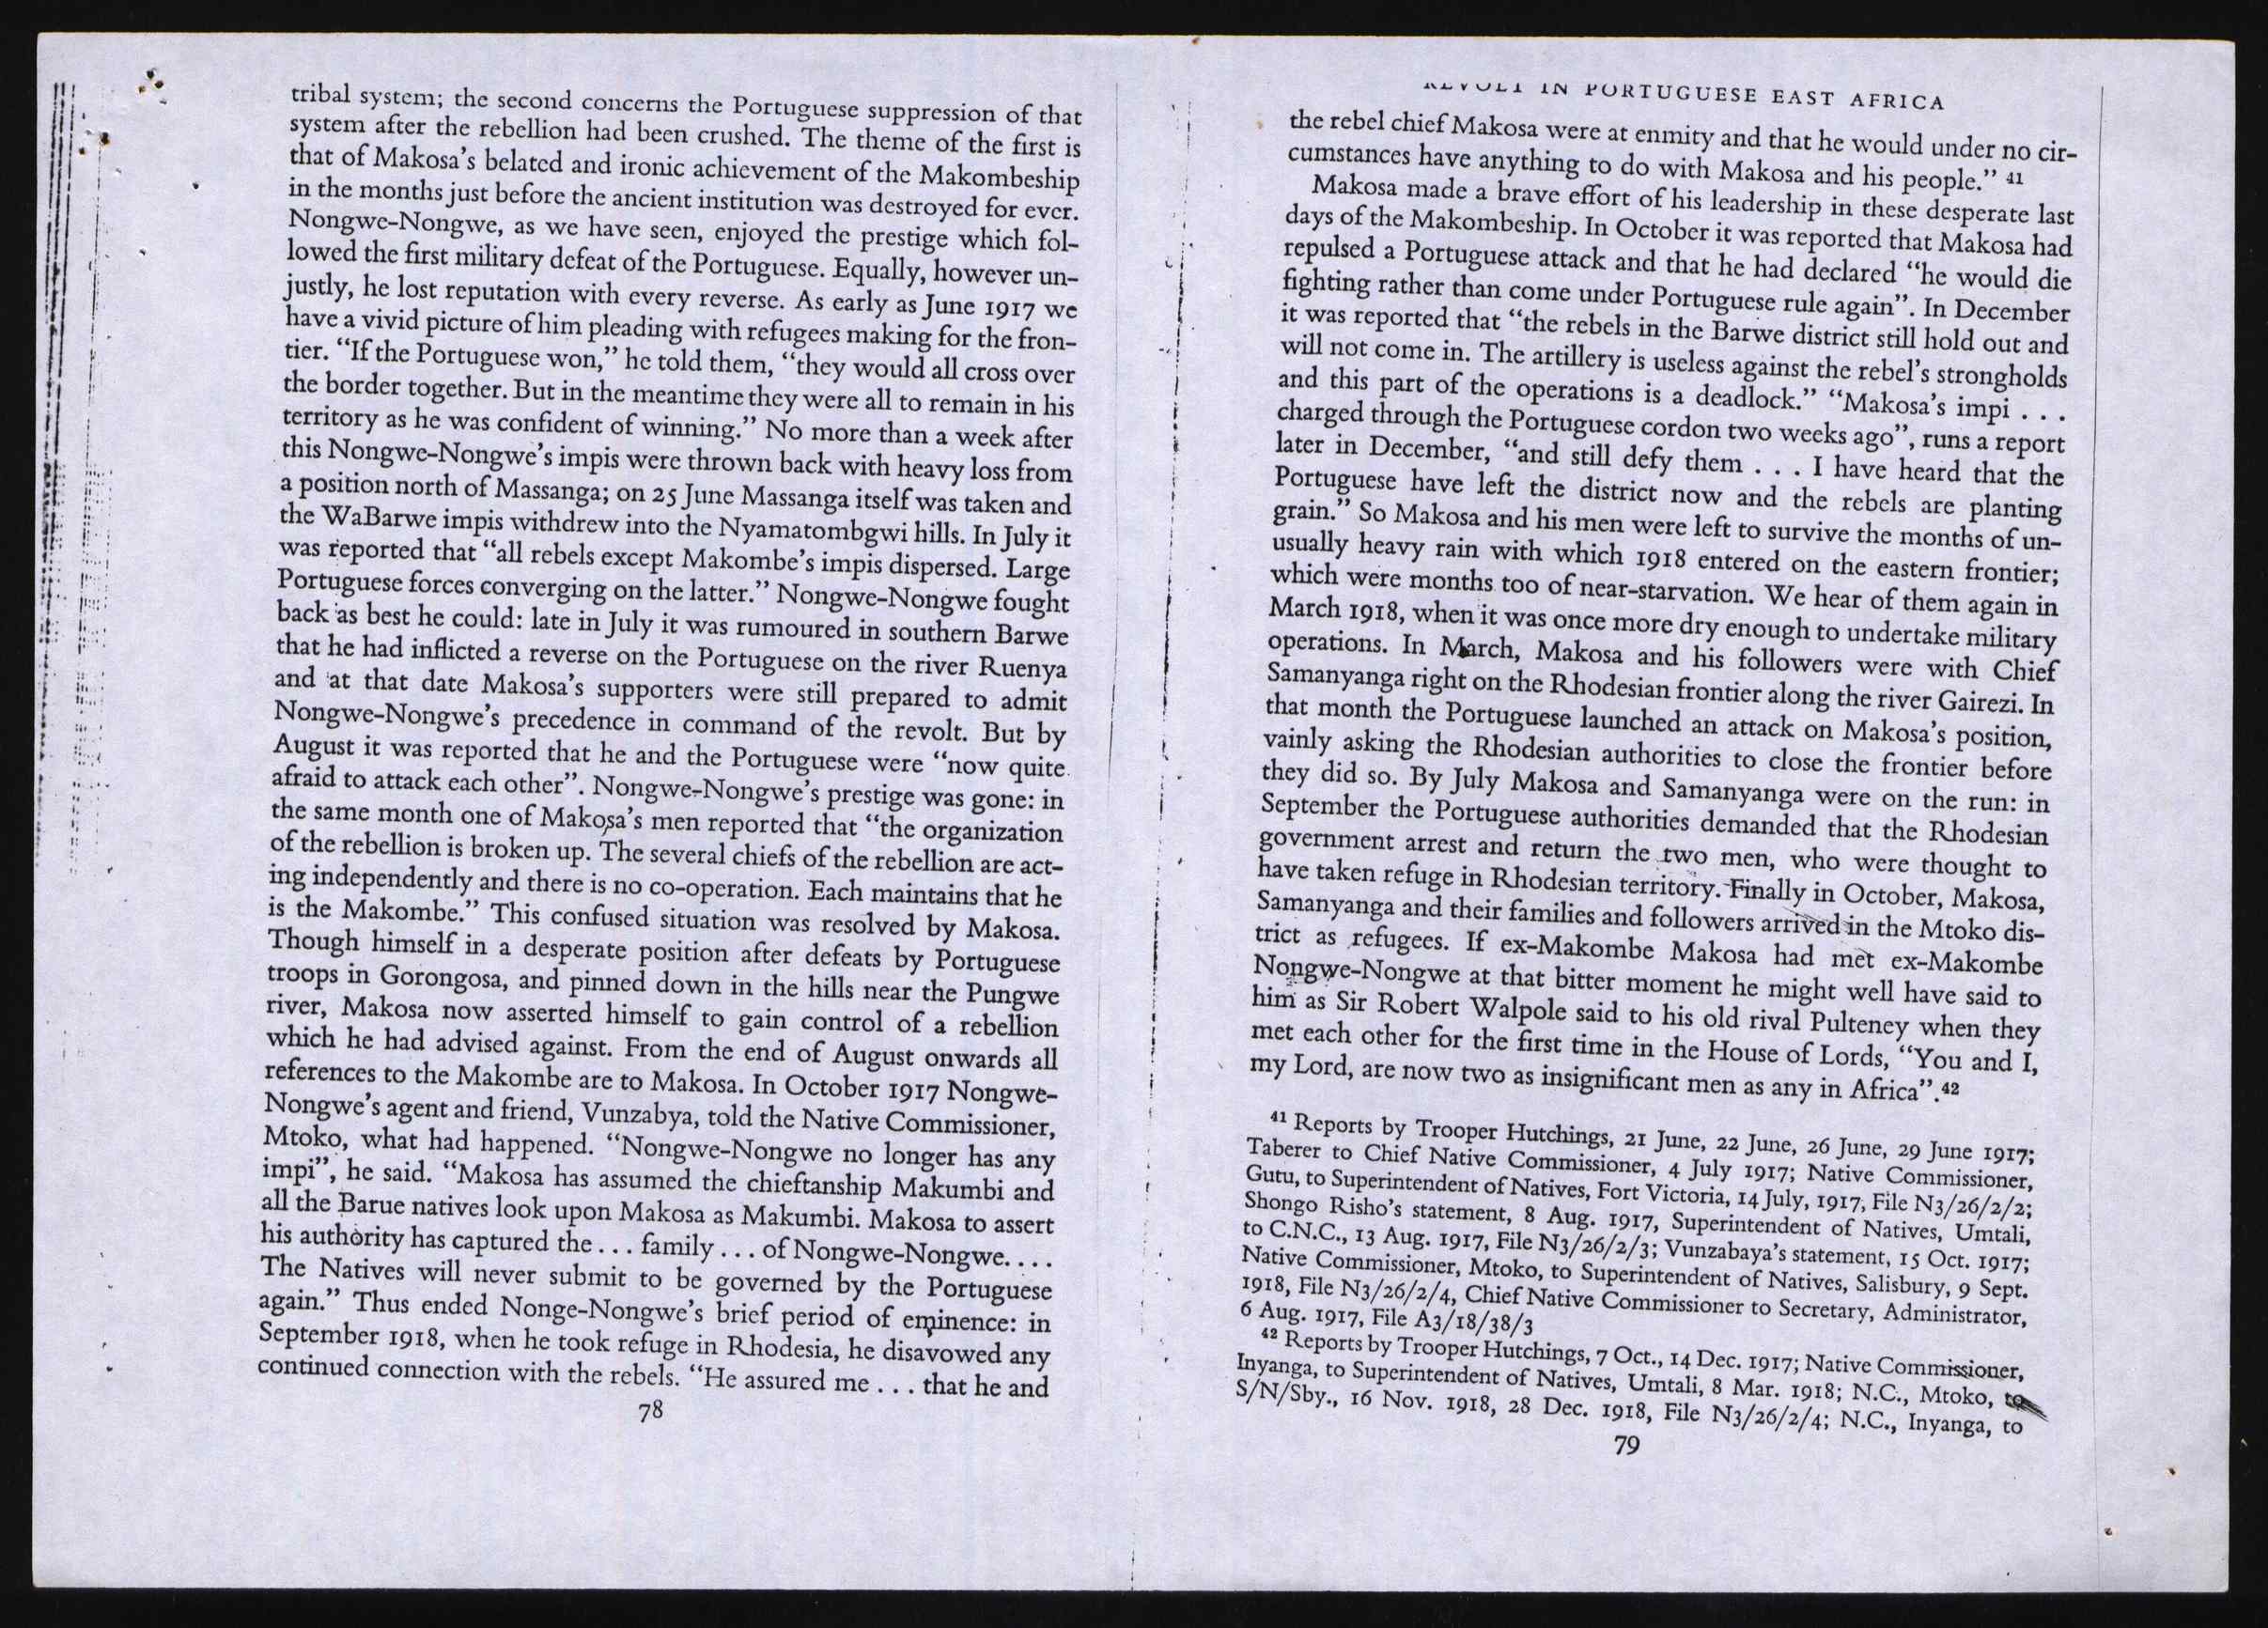 tribal system; the second concerns the Portuguese suppression of that
system after the rebellion had been crushed. The theme of the first is
that of Makosa's belated and ironic achievement of the Makombeship
in the months just before the ancient institution was destroyed for ever.
Nongwe-Nongwe, as we have seen, enjoyed the prestige which fol-
lowed the first military defeat of the Portuguese. Equally, however un-
justly, he lost reputation with every reverse. As early as June 1917 we
have a vivid picture of him pleading with refugees making for the fron-
tier. “If the Portuguese won,” he told them, “they would all cross over
the border together. But in the meantime they were all to remain in his
territory as he was confident of winning.” No more than a week after
this Nongwe-Nongwe's impis were thrown back with heavy loss from
a position north of Massanga; on 25 June Massanga itself was taken and
the WaBarwe impis withdrew into the Nyamatombgwi hills. In July it
was reported that “all rebels except Makombe's impis dispersed. Large
Portuguese forces converging on the latter.” Nongwe-Nongwe fought
back as best he could: late in July it was rumoured in southern Barwe
that he had inflicted a reverse on the Portuguese on the river Ruenya
and at that date Makosa's supporters were still prepared to admit
Nongwe-Nongwe's precedence in command of the revolt. But by
August it was reported that he and the Portuguese were “now quite
afraid to attack each other”. Nongwe-Nongwe's prestige was gone: in
the same month one of Makosa's men reported that “the organization
of the rebellion is broken up. The several chiefs of the rebellion are act-
ing independently and there is no co-operation. Each maintains that he
is the Makombe.” This confused situation was resolved by Makosa.
Though himself in a desperate position after defeats by Portuguese
troops in Gorongosa, and pinned down in the hills near the Pungwe
river, Makosa now asserted himself to gain control of a rebellion
which he had advised against. From the end of August onwards all
references to the Makombe are to Makosa. In October 1917 Nongwe-
Nongwe's agent and friend, Vunzabya, told the Native Commissioner,
Mtoko, what had happened. “Nongwe-Nongwe no longer has any
impi”, he said. “Makosa has assumed the chieftanship Makumbi and
all the Barue natives look upon Makosa as Makumbi. Makosa to assert
his authority has captured the . . . family . . . of Nongwe-Nongwe. . . .
The Natives will never submit to be governed by the Portuguese
again.” Thus ended Nonge-Nongwe's brief period of eminence: in
September 1918, when he took refuge in Rhodesia, he disavowed any
continued connection with the rebels. “He assured me . . . that he and
78
REVOLT IN PORTUGUESE EAST AFRICA
the rebel chief Makosa were at enmity and that he would under no cir-
cumstances have anything to do with Makosa and his people.” 41
Makosa made a brave effort of his leadership in these desperate last
days of the Makombeship. In October it was reported that Makosa had
repulsed a Portuguese attack and that he had declared “he would die
fighting rather than come under Portuguese rule again”. In December
it was reported that “the rebels in the Barwe district still hold out and
will not come in. The artillery is useless against the rebel's strongholds
and this part of the operations is a deadlock.” “Makosa's impi . . .
charged through the Portuguese cordon two weeks ago”, runs a report
later in December, “and still defy them . . . I have heard that the
Portuguese have left the district now and the rebels are planting
grain.” So Makosa and his men were left to survive the months of un-
usually heavy rain with which 1918 entered on the eastern frontier;
which were months too of near-starvation. We hear of them again in
March 1918, when it was once more dry enough to undertake military
operations. In March, Makosa and his followers were with Chief
Samanyanga right on the Rhodesian frontier along the river Gairezi. In
that month the Portuguese launched an attack on Makosa's position,
vainly asking the Rhodesian authorities to close the frontier before
they did so. By July Makosa and Samanyanga were on the run: in
September the Portuguese authorities demanded that the Rhodesian
government arrest and return the two men, who were thought to
have taken refuge in Rhodesian territory. Finally in October, Makosa,
Samanyanga and their families and followers arrived in the Mtoko dis-
trict as refugees. If ex-Makombe Makosa had met ex-Makombe
Nongwe-Nongwe at that bitter moment he might well have said to
him as Sir Robert Walpole said to his old rival Pulteney when they
met each other for the first time in the House of Lords, “You and I,
my Lord, are now two as insignificant men as any in Africa”.42
41 Reports by Trooper Hutchings, 21 June, 22 June, 26 June, 29 June 1917;
Taberer to Chief Native Commissioner, 4 July 1917; Native Commissioner,
Gutu, to Superintendent of Natives, Fort Victoria, 14 July, 1917, File N3/26/2/2;
Shongo Risho's statement, 8 Aug. 1917, Superintendent of Natives, Umtali,
to C.N.C., 13 Aug. 1917, File N3/26/2/3; Vunzabaya's statement, 15 Oct. 1917;
Native Commissioner, Mtoko, to Superintendent of Natives, Salisbury, 9 Sept.
1918, File N3/26/2/4, Chief Native Commissioner to Secretary, Administrator,
6 Aug. 1917, File A3/18/38/3
42 Reports by Trooper Hutchings, 7 Oct., 14 Dec. 1917; Native Commissioner,
Inyanga, to Superintendent of Natives, Umtali, 8 Mar. 1918; N.C., Mtoko, to
S/N/Sby., 16 Nov. 1918, 28 Dec. 1918, File N3/26/2/4; N.C., Inyanga, to
79